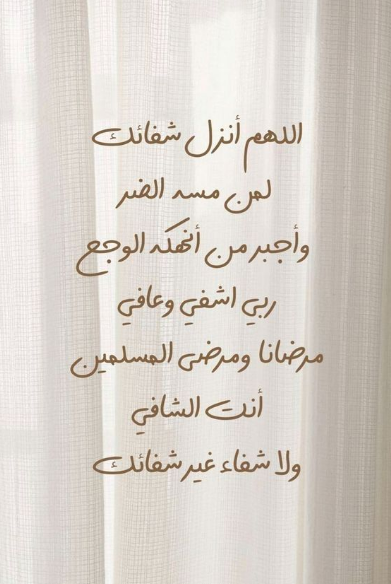 اللهم أنزل شفائك
لمن مسه الضر
وأجبر من أنهكه الوجع
ربي اشفي وعافي
مرضانا ومرضى المسلمين
أنت الشافي
ولا شفاء غير شفائك